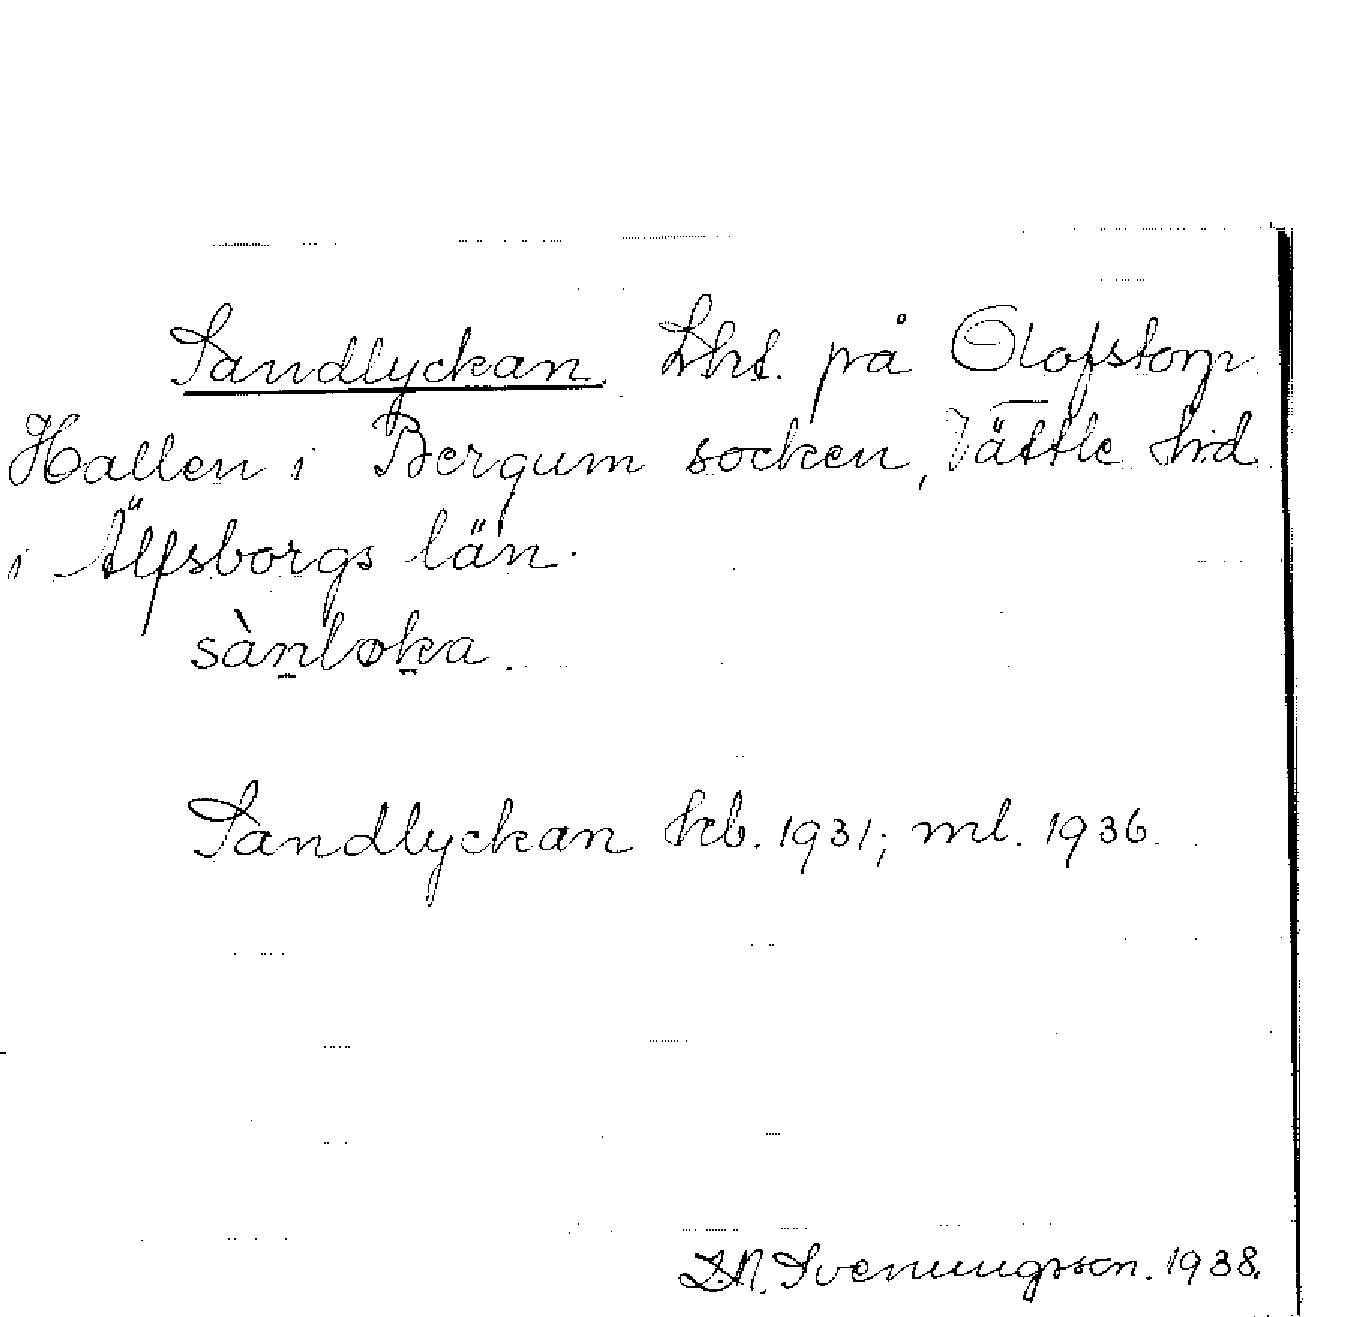 Sandlyckan. Lht. på Olofstorp
Hallen i Bergum socken, Vättle hd.
i Älfsborgs län.
sànløka.
Sandlyckan kb. 1931; ml. 1936.
S.N. Svenungsson. 1938.